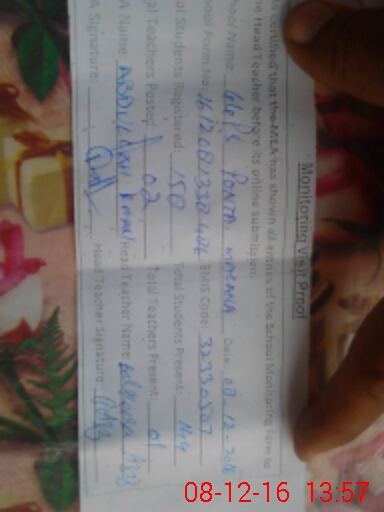 Monitoring Visit Proof
certified that the MEA has shown all entries of the School Monitoring Form to
he Head Teacher before its online submission.
hool Name: GGPS PONTA Date: 08-12-2016
hool Form No: EMIS Code: 32330507
al Students Registered: 150 Total Students Present: 144
al Teachers Posted: 02 Total Teachers Present: 01
A Name: ABDULLAH KHAN Head Teacher Name:
A Signature: Head Teacher Signature:
08-12-16 13:57